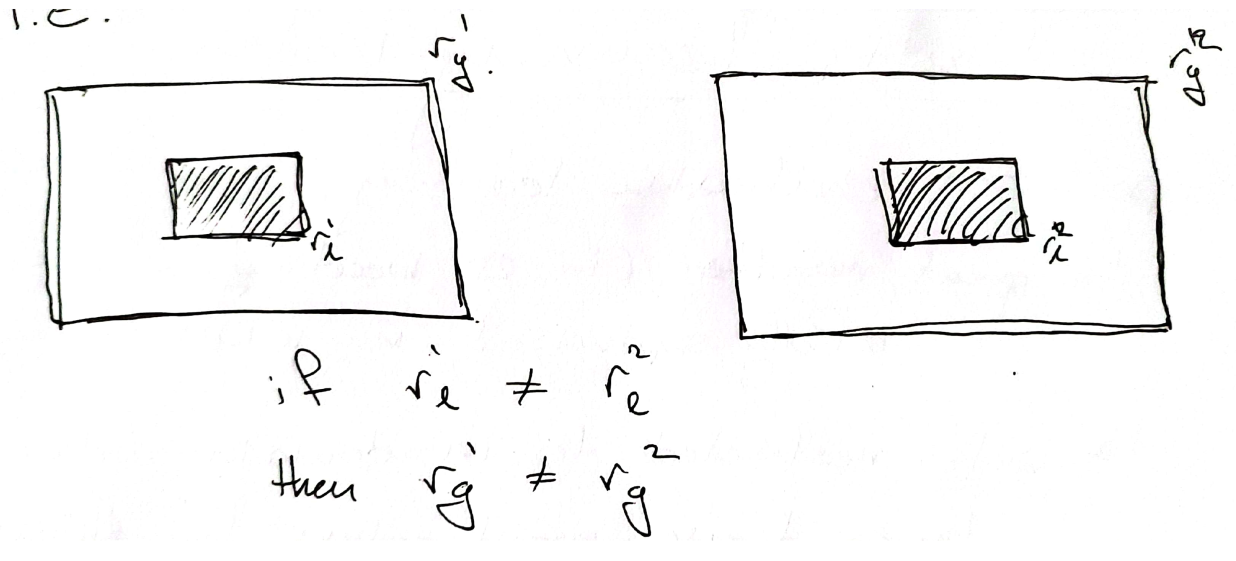 i.e.
r_g^1.
r_g^2
r_l^1
r_l^2
if r_l^1 ≠ r_l^2
then r_g^1 ≠ r_g^2